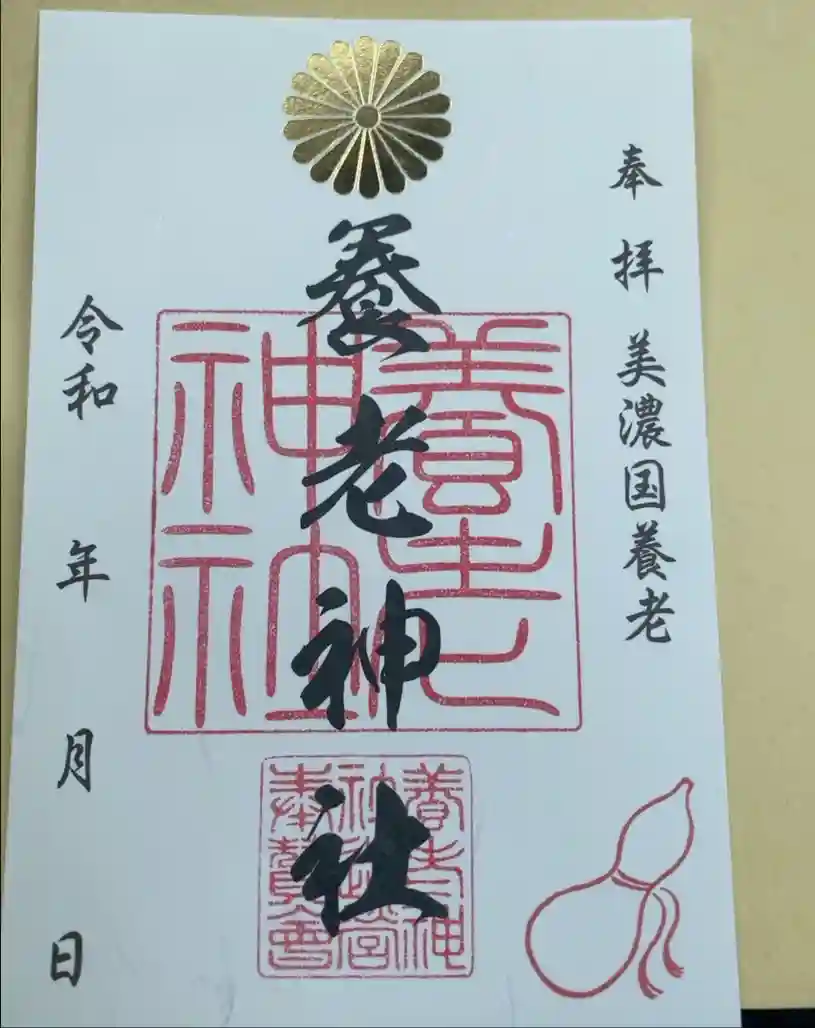 奉拝 美濃国養老
養老神社
養老
神社
養老神
社造営
奉賛会
令和 年 月 日